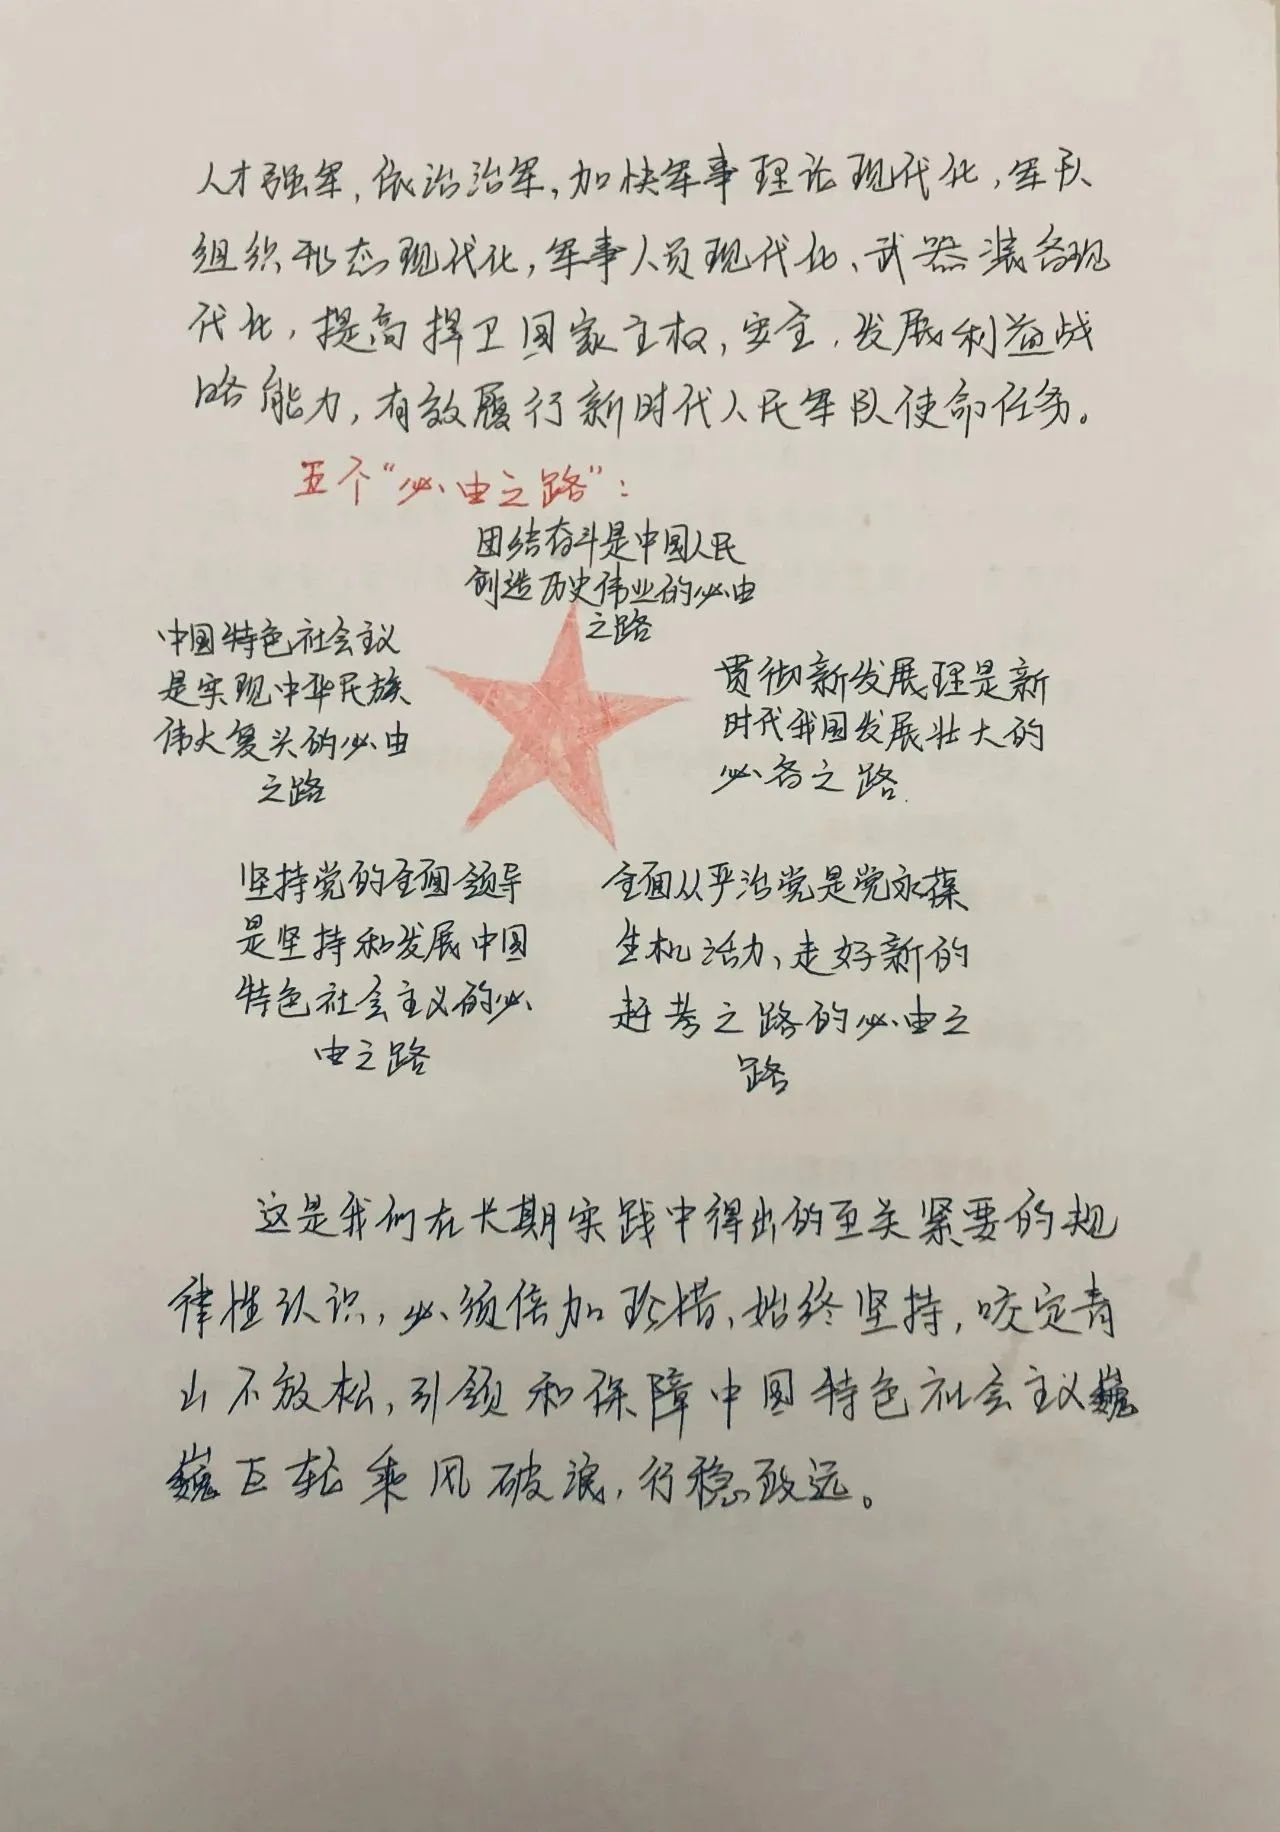 人才强军,依法治军,加快军事理论现代化,军队
组织形态现代化,军事人员现代化、武器装备现
代化,提高捍卫国家主权,安全,发展利益战
略能力,有效履行新时代人民军队使命任务。
五个“必由之路”:
团结奋斗是中国人民
创造历史伟业的必由
之路
中国特色社会主义
是实现中华民族
伟大复兴的必由
之路
贯彻新发展理是新
时代我国发展壮大的
必备之路.
坚持党的全面领导
是坚持和发展中国
特色社会主义的必
由之路
全面从严治党是党永葆
生机活力、走好新的
赶考之路的必由之
路
这是我们在长期实践中得出的至关紧要的规
律性认识,必须倍加珍惜、始终坚持,咬定青
山不放松,引领和保障中国特色社会主义巍
巍巨轮乘风破浪,行稳致远。